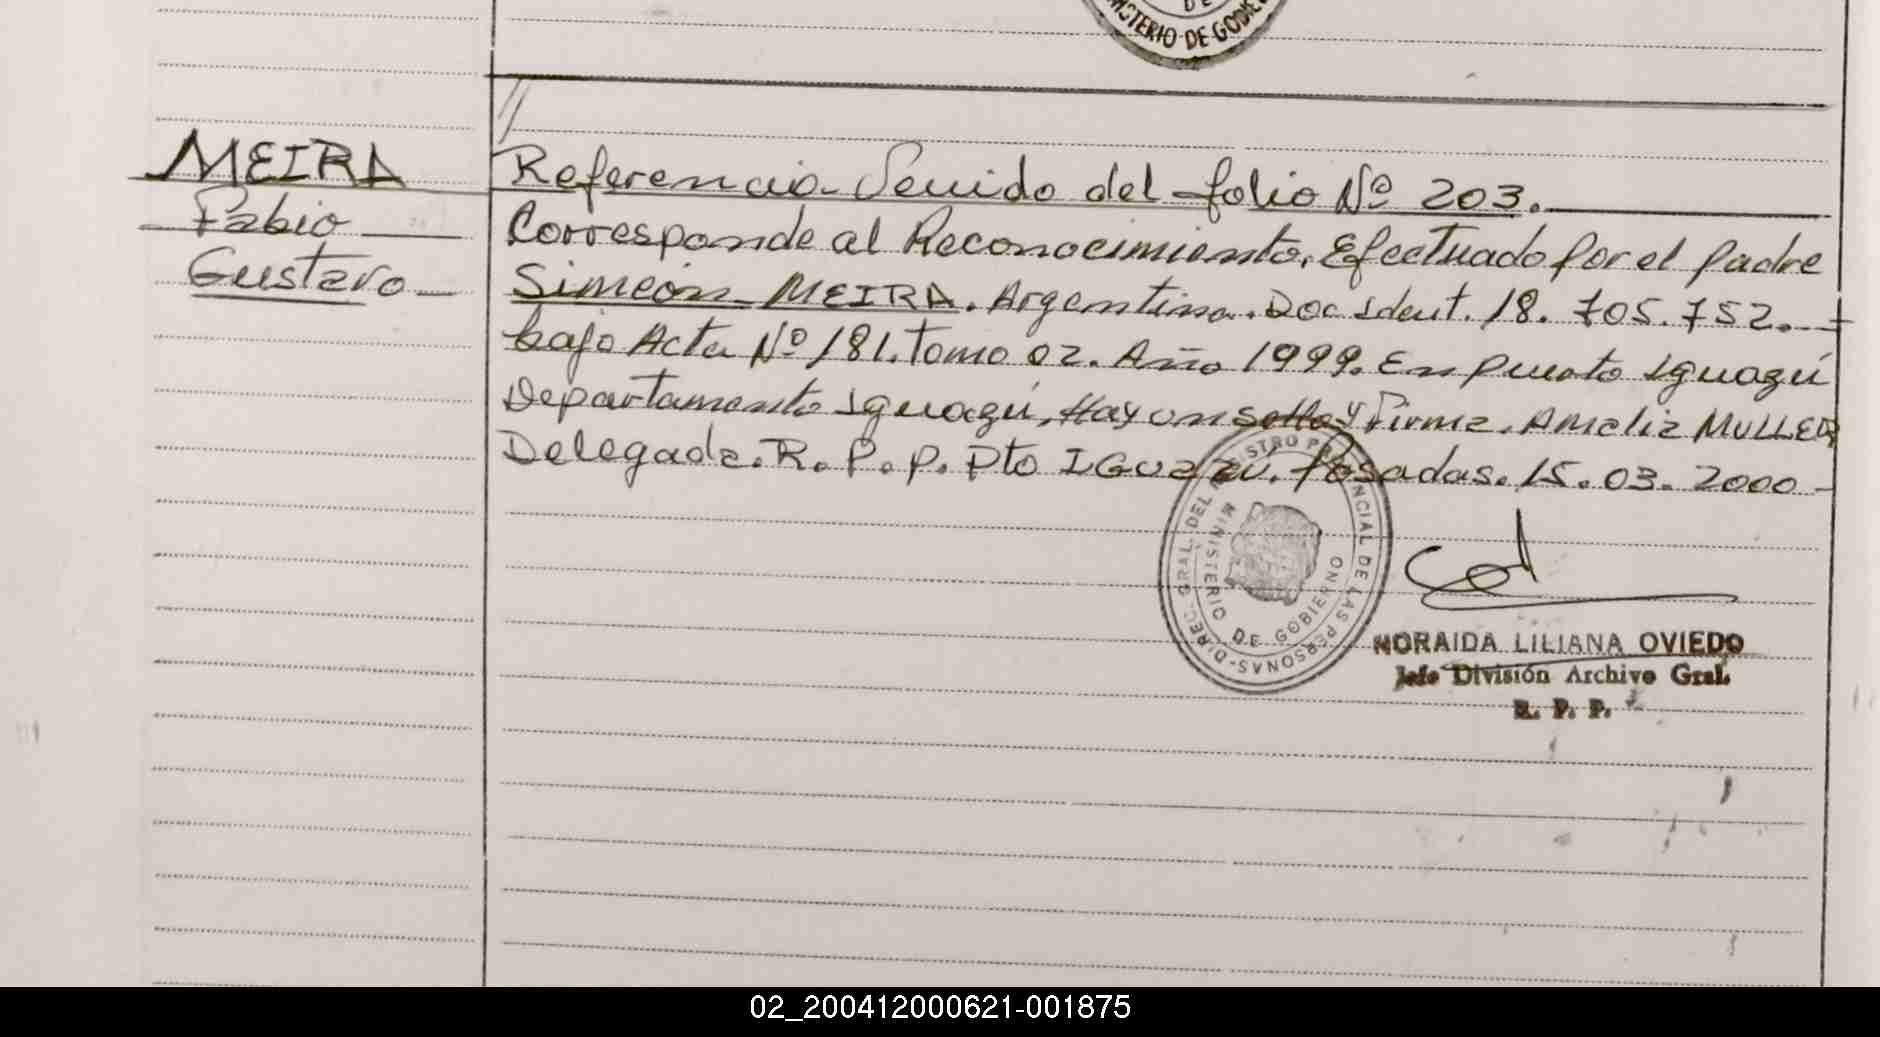 DE
MINISTERIO DE GOBIERNO
MEIRA
Fabio
Gustavo
Referencia Venido del folio Nº 203.
Corresponde al Reconocimiento. Efectuado por el padre
Simeón MEIRA. Argentino. Doc Ident. 18. 705. 752.
bajo Acta Nº 181. Tomo 02. Año 1999. En puerto Iguazú
Departamento Iguazú. Hay un sello y Firma. Amelia MULLER
Delegada. R. P. P. Pto IGuazu. Posadas. 15. 03. 2000
DIREC. GRAL. DEL REGISTRO PROVINCIAL DE LAS PERSONAS
MINISTERIO DE GOBIERNO
NORAIDA LILIANA OVIEDO
Jefe División Archivo Gral.
R. P. P.
02_200412000621-001875